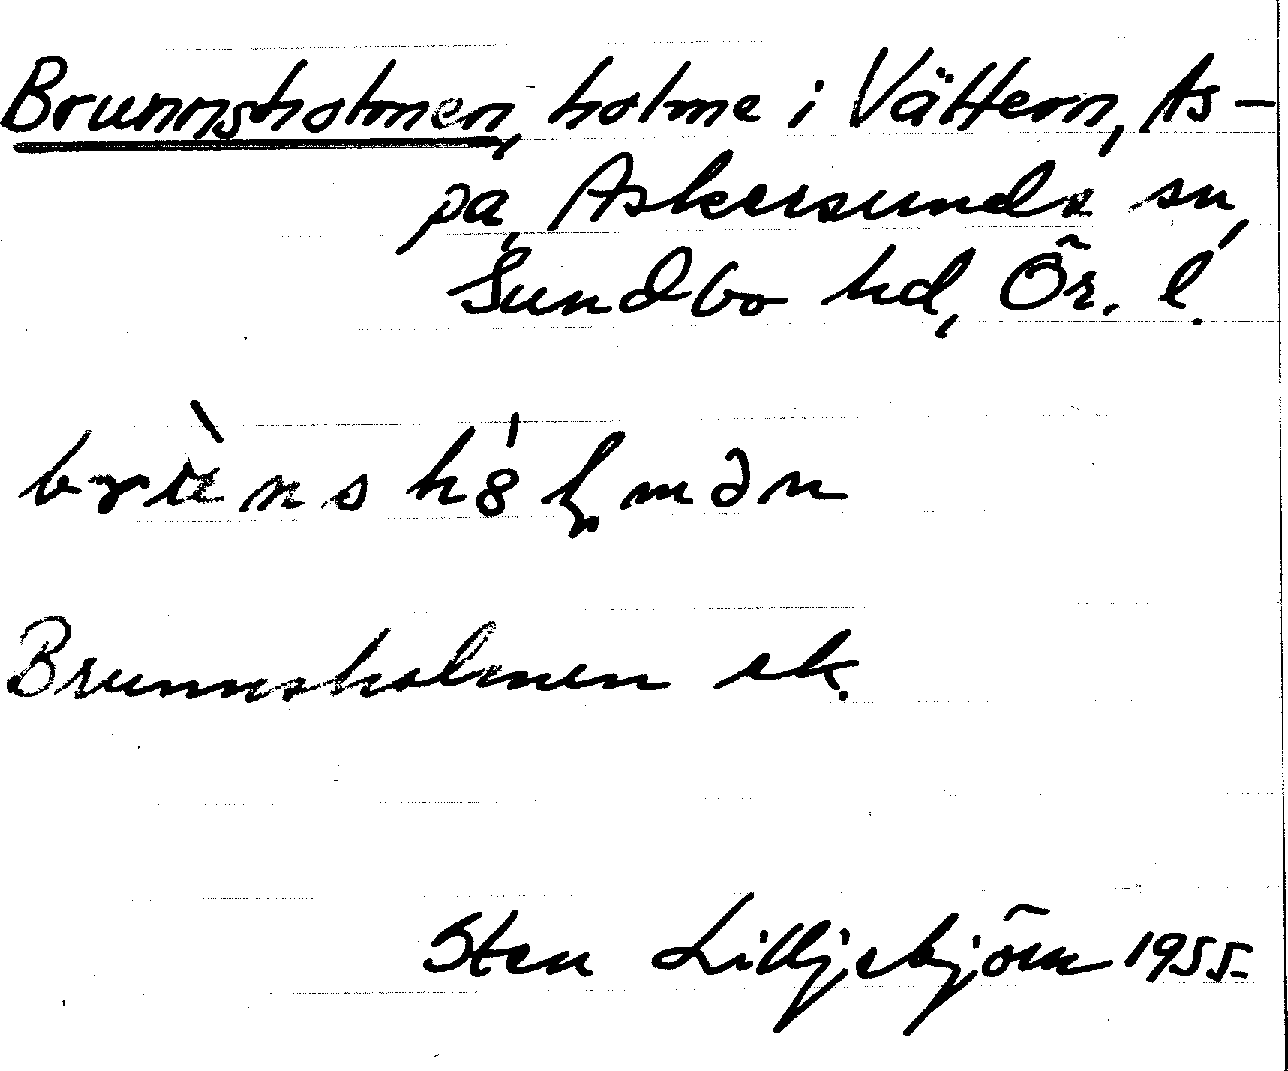 Brunnsholmen, holme i Vättern, As-
pa, Askersunds sn,
Sundbo hd, Ör. l.
Brunnsholmen ek.
Sten Lilljebjörn 1955